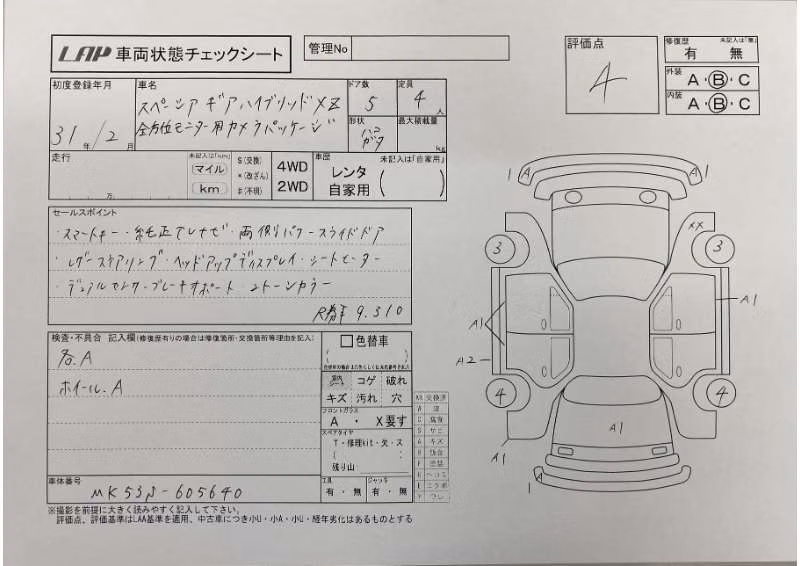 LAP 車両状態チェックシート
管理No
評価点
A
修復歴 未記入は「無」
有 無
外装
A・B・C
内装
A・B・C
初度登録年月
31年/2月
車名
スペーシア ギア ハイブリッドXZ
全方位モニター用カメラパッケージ
ドア数
5
定員
4人
形状
ハコ
ガタ
最大積載量
kg
走行
万
未記入は「km」
マイル
km
$(交換)
*(改ざん)
#(不明)
4WD
2WD
車歴 未記入は「自家用」
レンタ
自家用
セールスポイント
・スマートキー・純正テレナビ・両側パワースライドドア
・レザーステアリング・ヘッドアップディスプレイ・シートヒーター
・デュアルセンサーブレーキサポート 2トーンカラー
9.310
検査・不具合 記入欄(修復歴有りの場合は修復箇所・交換箇所等理由を記入)
各.A
ホイール.A
色替車
コゲ 破れ
キズ 汚れ 穴
フロントガラス
A ・ X要す
スペアタイヤ
T・修理kit・欠・ス
残り山
工具
有・無
ジャッキ
有・無
車体番号
MK53S-605640
※撮影を前提に大きく読みやすく記入して下さい。
評価点、評価基準はLAA基準を適用、中古車につき小U・小A・小U・経年劣化はあるものとする
XX 交換済
1 A
A 1
3
XX
3
A1
A1
A2
4
4
A1
A1
1 A